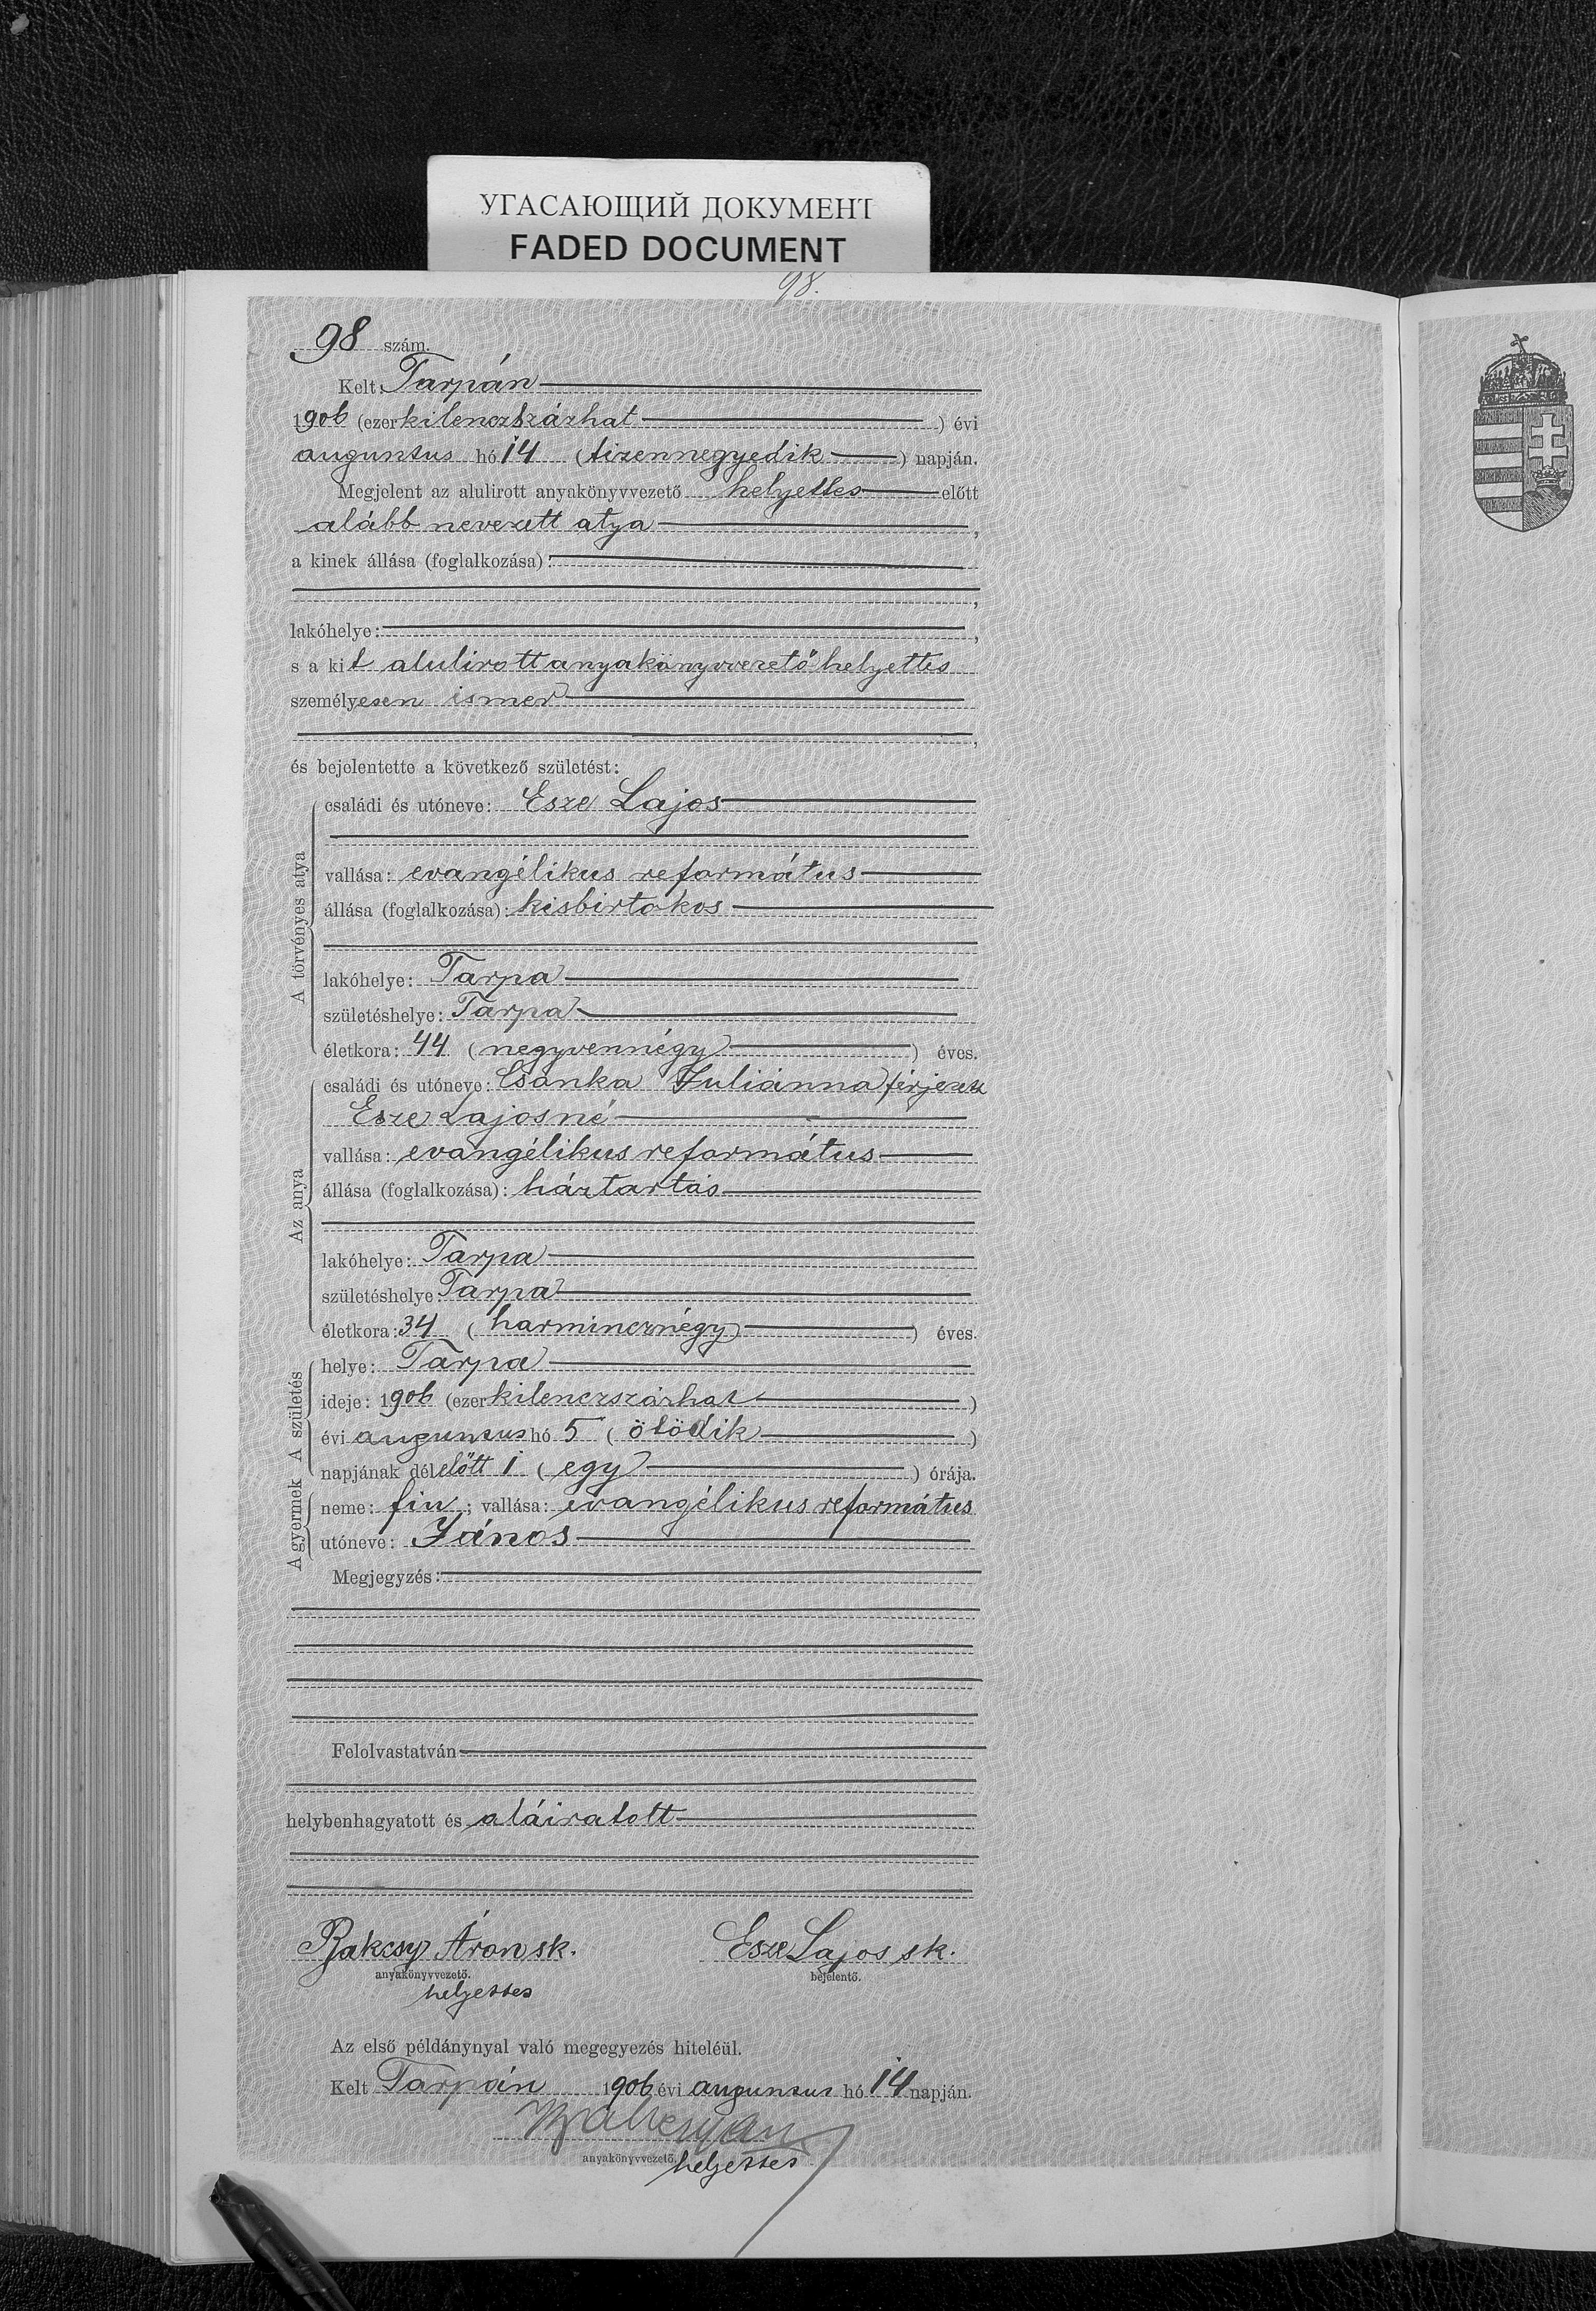 УГАСАЮЩИЙ ДОКУМЕНТ
FADED DOCUMENT
98.
98 szám.
Kelt: Tarpán
1906 (ezerkilenczszázhat) évi
auguszus hó 14 (tizennegyedik) napján.
Megjelent az alulirott anyakönyvvezető helyettes előtt
alább nevezett atya,
a kinek állása (foglalkozása):
,
lakóhelye: ,
s a kit alulirott anyakönyvvezető helyettes
személyesen ismer
,
és bejelentette a következő születést:
A törvényes atya
családi és utóneve: Esze Lajos
vallása: evangélikus református
állása (foglalkozása): kisbirtokos
lakóhelye: Tarpa
születéshelye: Tarpa
életkora: 44 (negyvennégy) éves.
Az anya
családi és utóneve: Csonka Juliánna férjezett
Esze Lajosné
vallása: evangélikus református
állása (foglalkozása): háztartás
lakóhelye: Tarpa
születéshelye: Tarpa
életkora: 34 (harmincznégy) éves.
A születés
helye: Tarpa
ideje: 1906 (ezerkilenczszázhat)
évi auguszus hó 5 (ötödik)
napjának délelőtt 1 (egy) órája.
A gyermek
neme: fiu; vallása: evangélikus református
utóneve: János
Megjegyzés:
Felolvastatván
helybenhagyatott és aláiratott
Bakcsy Áron sk. Esze Lajos sk.
anyakönyvvezető. bejelentő.
helyettes
Az első példánynyal való megegyezés hiteléül.
Kelt Tarpán 1906 évi auguszus hó 14 napján.
anyakönyvvezető.
helyettes